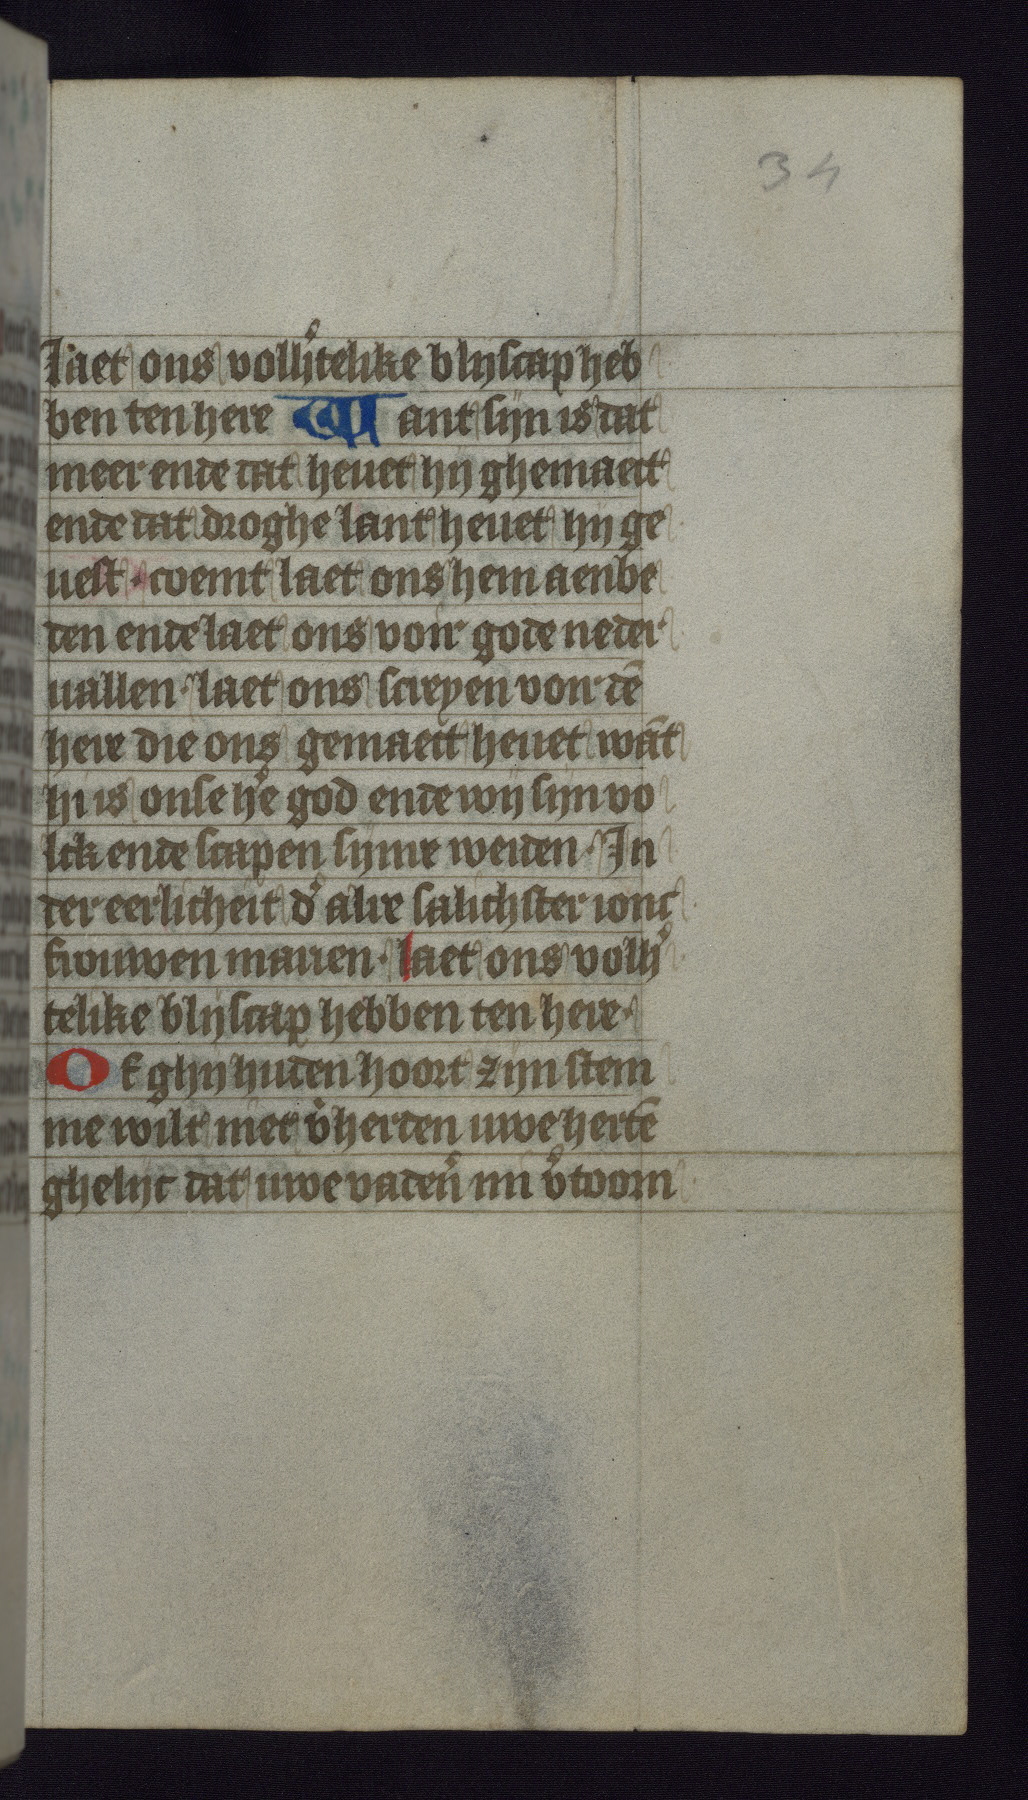 34
laet ons volh̓telike blijscap heb
ben ten here Want sijn is dat
meer ende dat heuet hij ghemaect
ende dat droghe lant heuet hij ge
uest · coemt laet ons hem aenbe
den ende laet ons voir gode neder
uallen · laet ons screyen voir dē
here die ons gemaect heuet wāt
hi is onse he̓ god ende wij sijn vo
lck ende scapen sijnre weiden · In
der eerlicheit d̓ alre salichster ionc
frouwen marien · laet ons volh̓
telike blijscap hebben ten here ·
Of ghij huden hoort zijn stem
me wilt niet v̓herden uwe hertē
ghelijc dat uwe vaden̓ mi v̓toorn